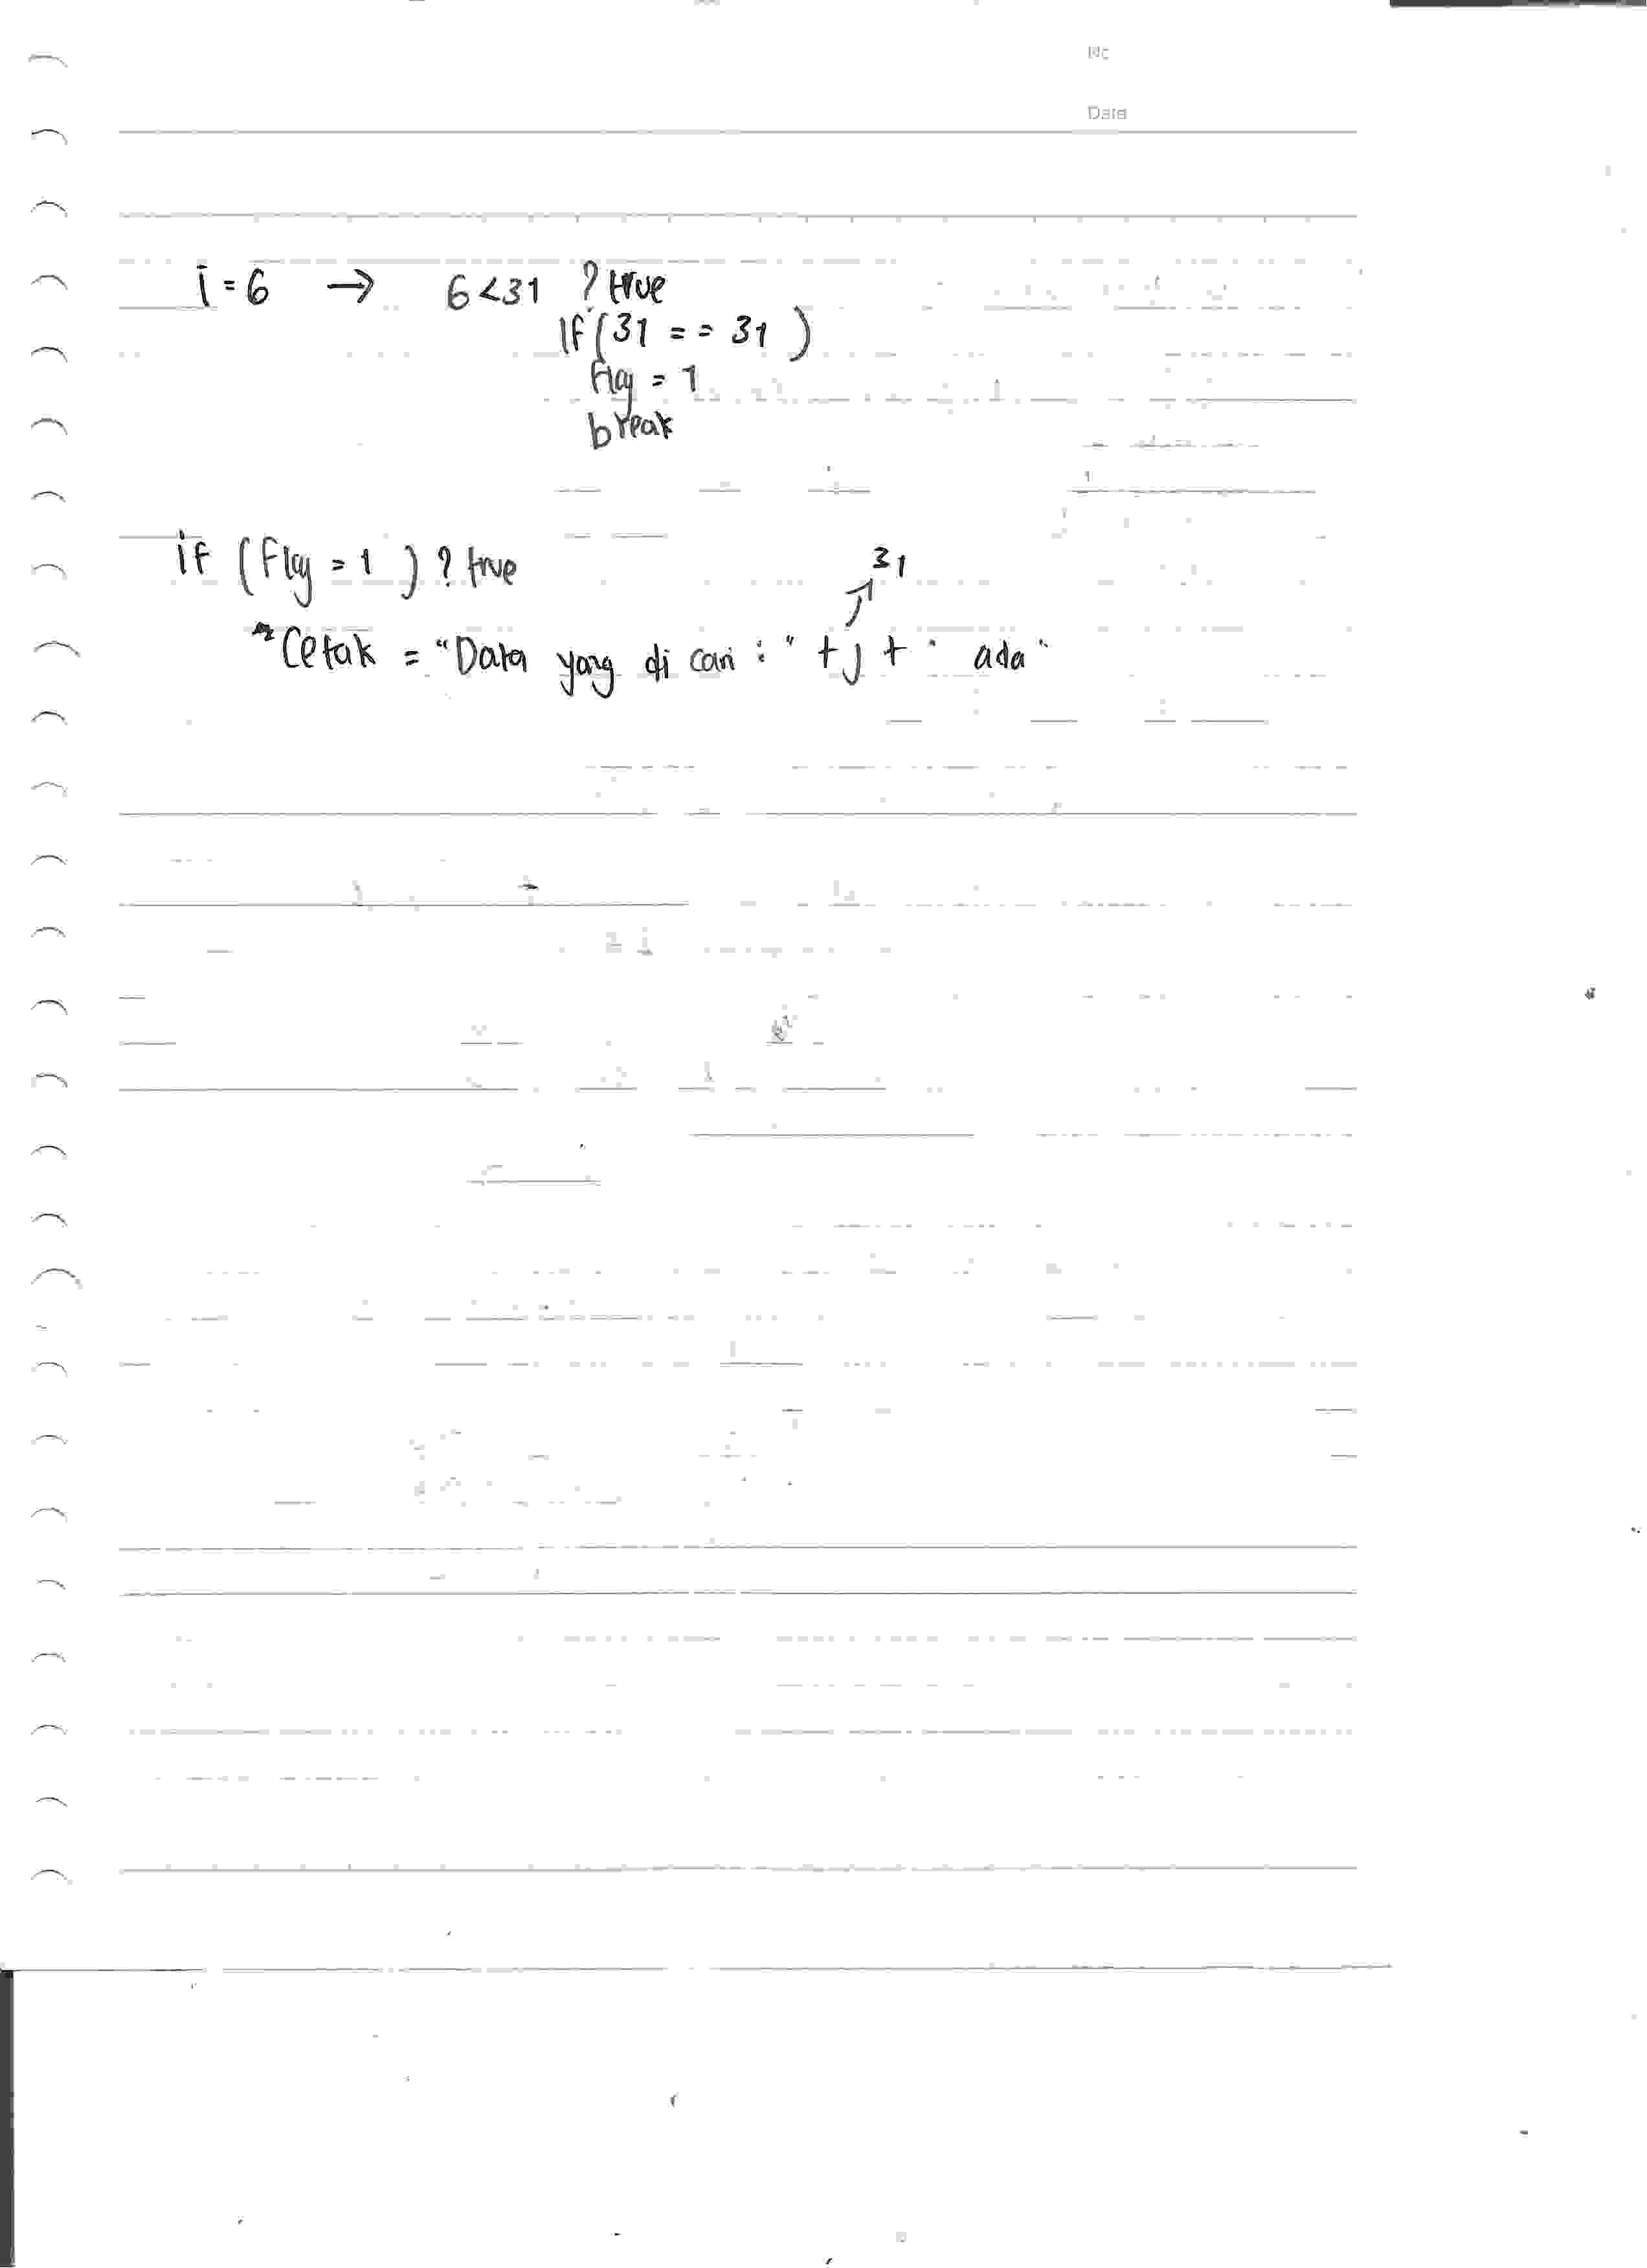 No
Date
i = 6 → 6 < 31 ? true
if (31 == 31)
flag = 1
break
if (flag = 1) ? true
31
Cetak = "Data yang di cari : " + j + " ada"